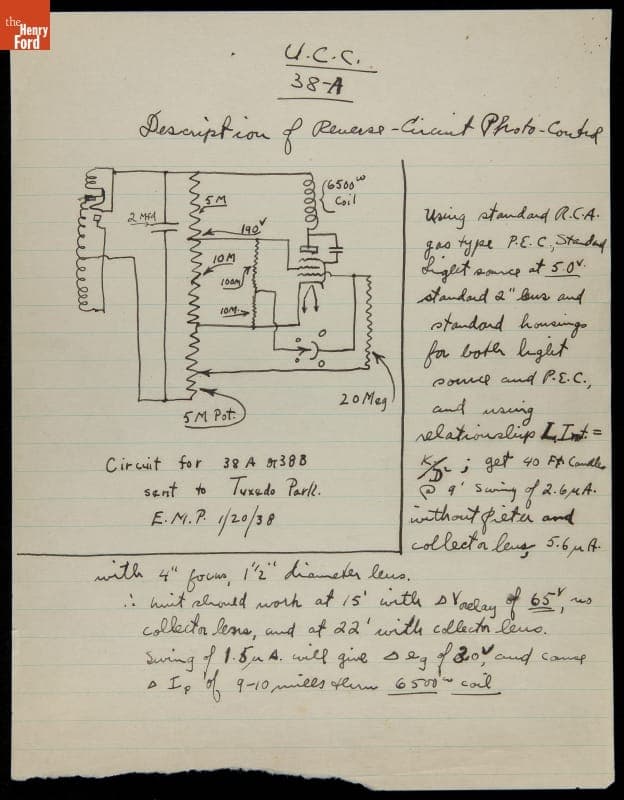 the
Henry
Ford
U.C.C.
38-A
Description of Reverse-Circuit Photo-Control
6500ʷ
Coil
5M
2 Mfd
190ᵛ
10M
100M
10M
20 Meg
5M Pot.
Circuit for 38A or 38B
sent to Tuxedo Park.
E.M.P. 1/20/38
Using standard R.C.A.
gas type P.E.C., Standard
Light source at 5.0ᵛ.
standard 2" lens and
standard housings
for both light
source and P.E.C.,
and using
relationship L Int. =
K/D²; get 40 Ft Candles
@ 9' swing of 2.6 μA.
without and
collector lens, 5.6 μA.
with 4" focus, 1½" diameter lens.
∴ unit should work at 15' with Δ V relay of 65ᵛ, no
collector lens, and at 22' with collector lens.
Swing of 1.5 μA. will give Δ eg of 30ᵛ, and cause
Δ Ip of 9-10 mills thru 6500ʷ coil